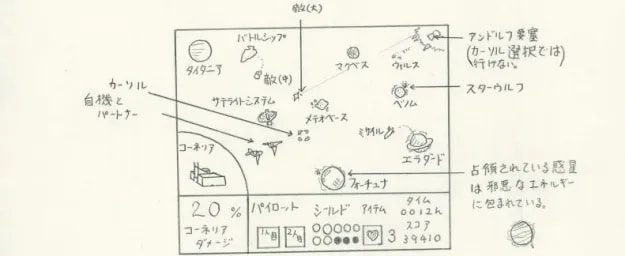 敵(大)
バトルシップ
タイタニア
敵(中)
マクベス
ウィルス
アンドルフ要塞
(カーソル選択では)
行けない。
カーソル
自機と
パートナー
サテライトシステム
メテオベース
ベノム
スターウルフ
ミサイル
コーネリア
エラダード
フォーチュナ
占領されている惑星
は邪悪なエネルギー
に包まれている。
20%
コーネリア
ダメージ
パイロット
1人目
2人目
シールド
アイテム
3
タイム
0012h
スコア
39410